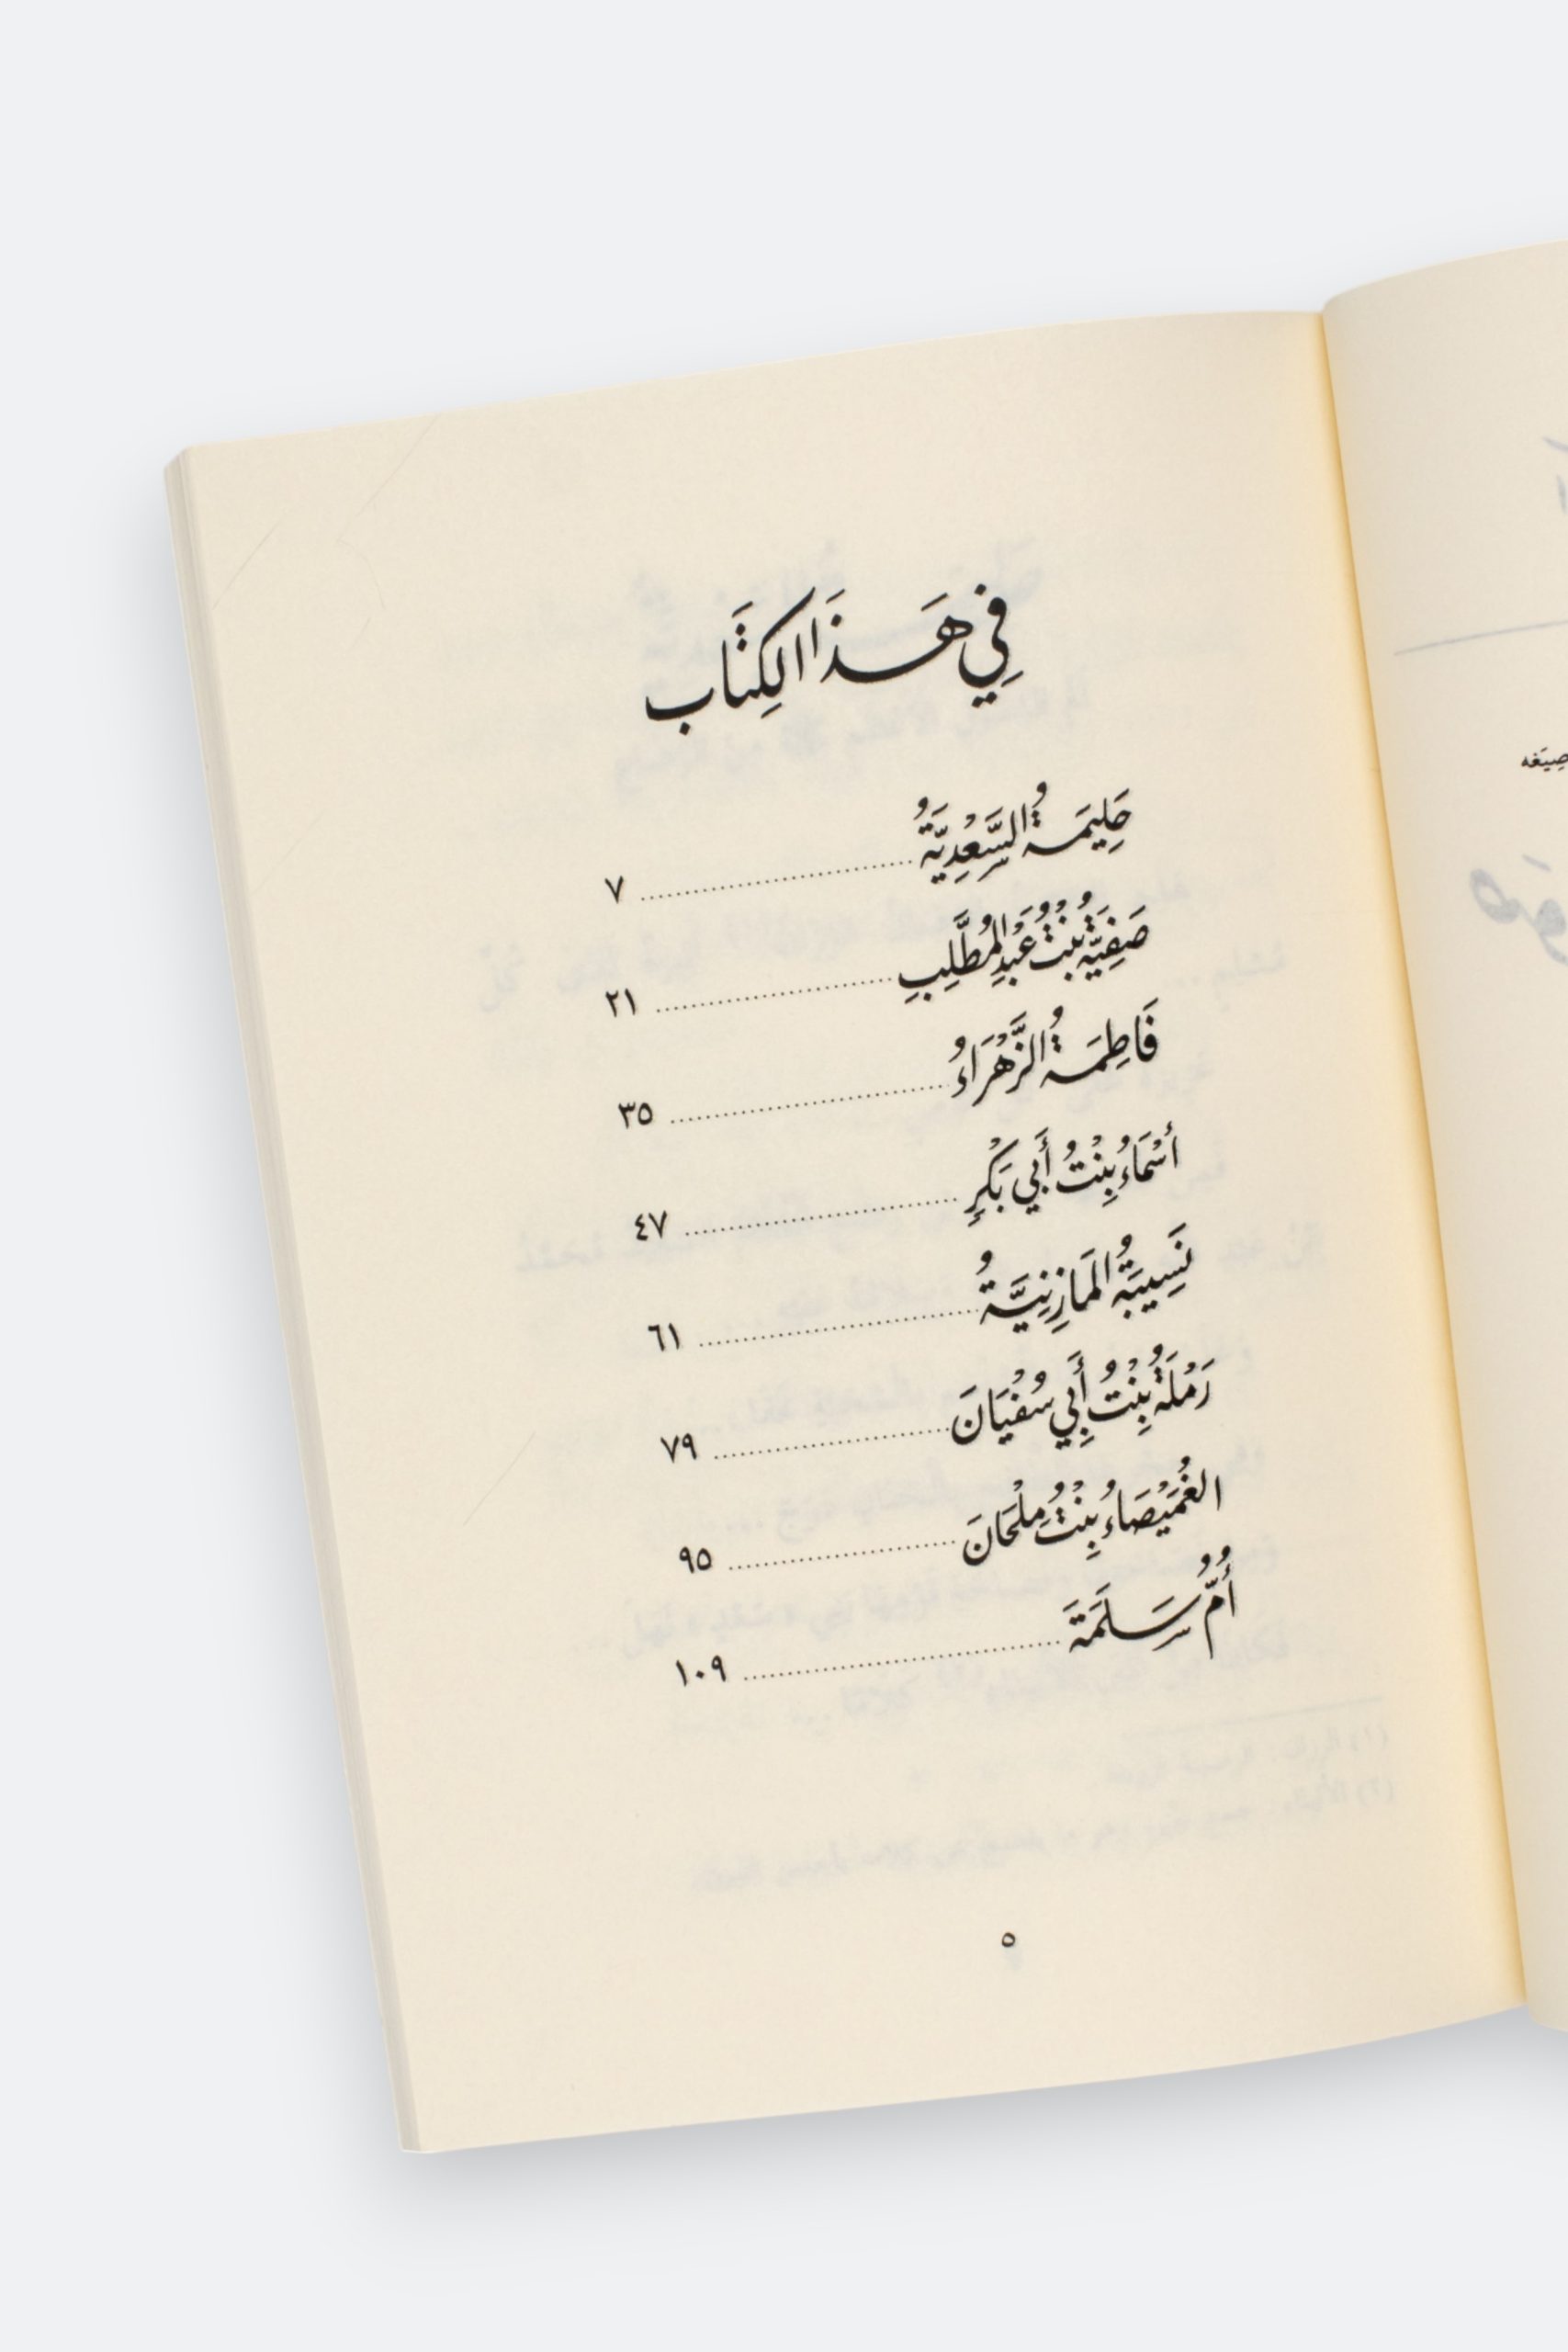 صِيَغه
فِي هَـذَا الكِتَاب
حَلِيمَـةُ السَّعْدِيَّةُ ........ ٧
صَفِيَّةُ بِنْتُ عَبْدِ المُطَّلِبِ ........ ٢١
فَاطِمَـةُ الزَّهْرَاءُ ........ ٣٥
أَسْمَاءُ بِنْتُ أَبِي بَكْرٍ ........ ٤٧
نَسِيبَةُ المَازِنِيَّةُ ........ ٦١
رَمْلَةُ بِنْتُ أَبِي سُفْيَانَ ........ ٧٩
الغُمَيْصَاءُ بِنْتُ مِلْحَانَ ........ ٩٥
أُمُّ سَـلَمَةَ ........ ١٠٩
٥